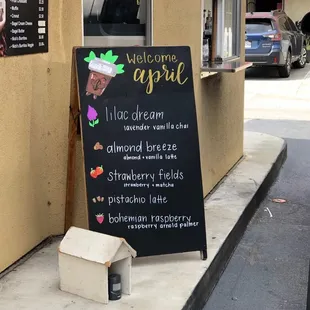 Welcome
april
lilac dream
lavender vanilla chai
almond breeze
almond + vanilla latte
strawberry fields
strawberry + matcha
pistachio latte
bohemian raspberry
raspberry arnold palmer